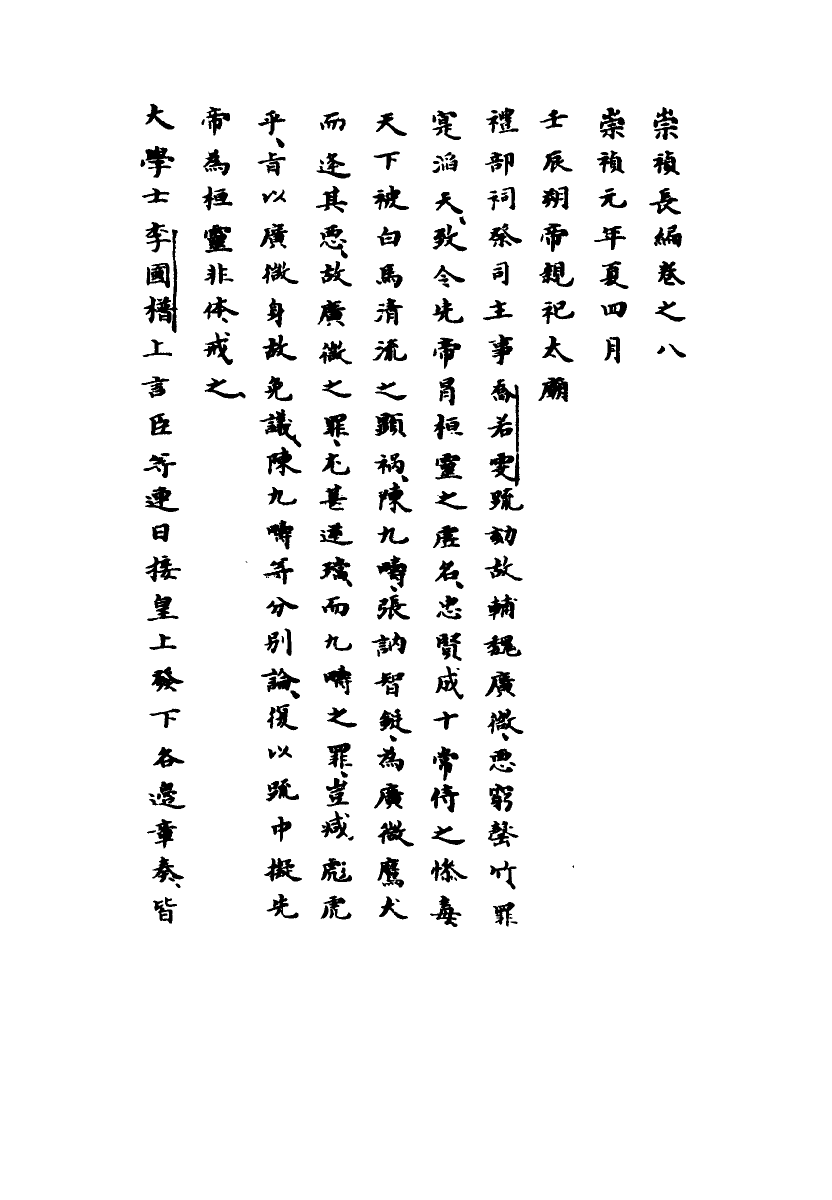 崇禎長編卷之八
崇禎元年夏四月
壬辰朔帝親祀太廟
禮部祠祭司主事喬若雯疏劾故輔魏廣微、惡窮罄竹、罪
寔滔天、致令先帝冐桓靈之虛名、忠賢成十常侍之慘毒
天下被白馬清流之顯禍、陳九疇、張訥智鋌、為廣微鷹犬
而逢其惡、故廣微之罪、尤甚逆璫、而九疇之罪、豈减彪虎
乎、旨以廣微身故免議、陳九疇等分別論、復以疏中擬先
帝為桓靈非体、戒之、
大學士李國𣚴上言臣等連日接皇上發下各邊章奏、皆